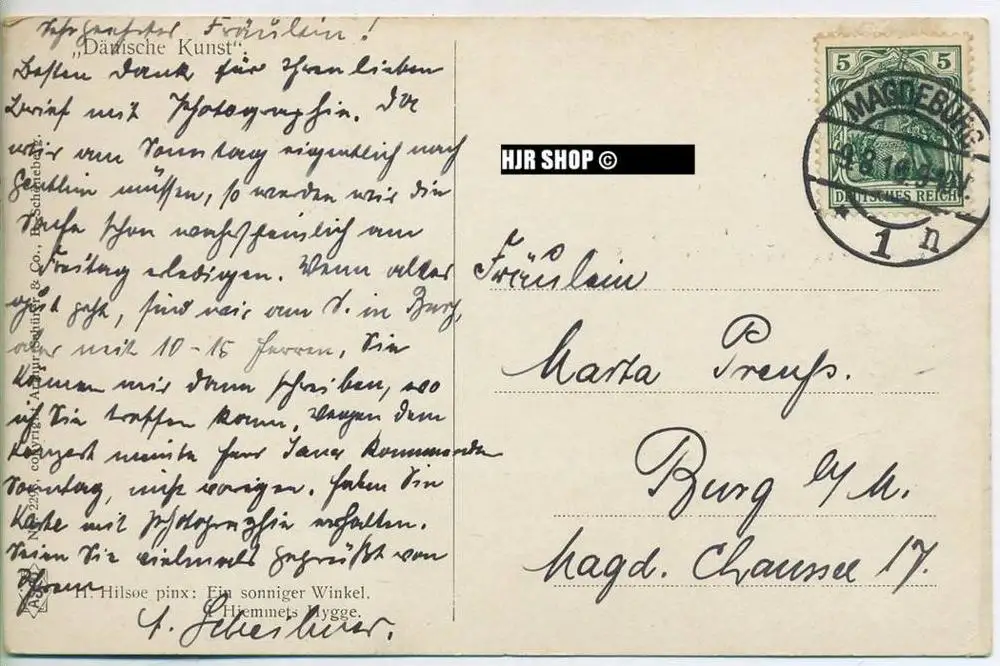 Sehr geehrtes Fräulein!
„Dänische Kunst".
Besten Dank für Ihren lieben
Brief mit Photographie. Da
wir am Sonntag eigentlich nach
Genthin müssen, so werden wir die
Sache schon wahrscheinlich am
Freitag erledigen. Wenn alles
gut geht, sind wir am S. in Burg,
aber mit 10-15 Herren. Sie
können mir dann schreiben, wo
ich Sie treffen kann. Wegen dem
Konzert meinte Herr kommenden
Sonntag, nicht vorigen. Haben Sie
Karte mit Photographie erhalten.
Seien Sie vielmals gegrüßt von
Ihrem
H. Hilsøe pinx: Ein sonniger Winkel.
Hjemmets Hygge.
Scheibner.
copyright, Arthur Schürer & Co., B.-Schöneberg.
HJR SHOP ©
5 5
DEUTSCHES REICH
MAGDEBURG
1 n
Fräulein
Marta Preuß.
Burg b/M.
Magd. Chaussee 17.